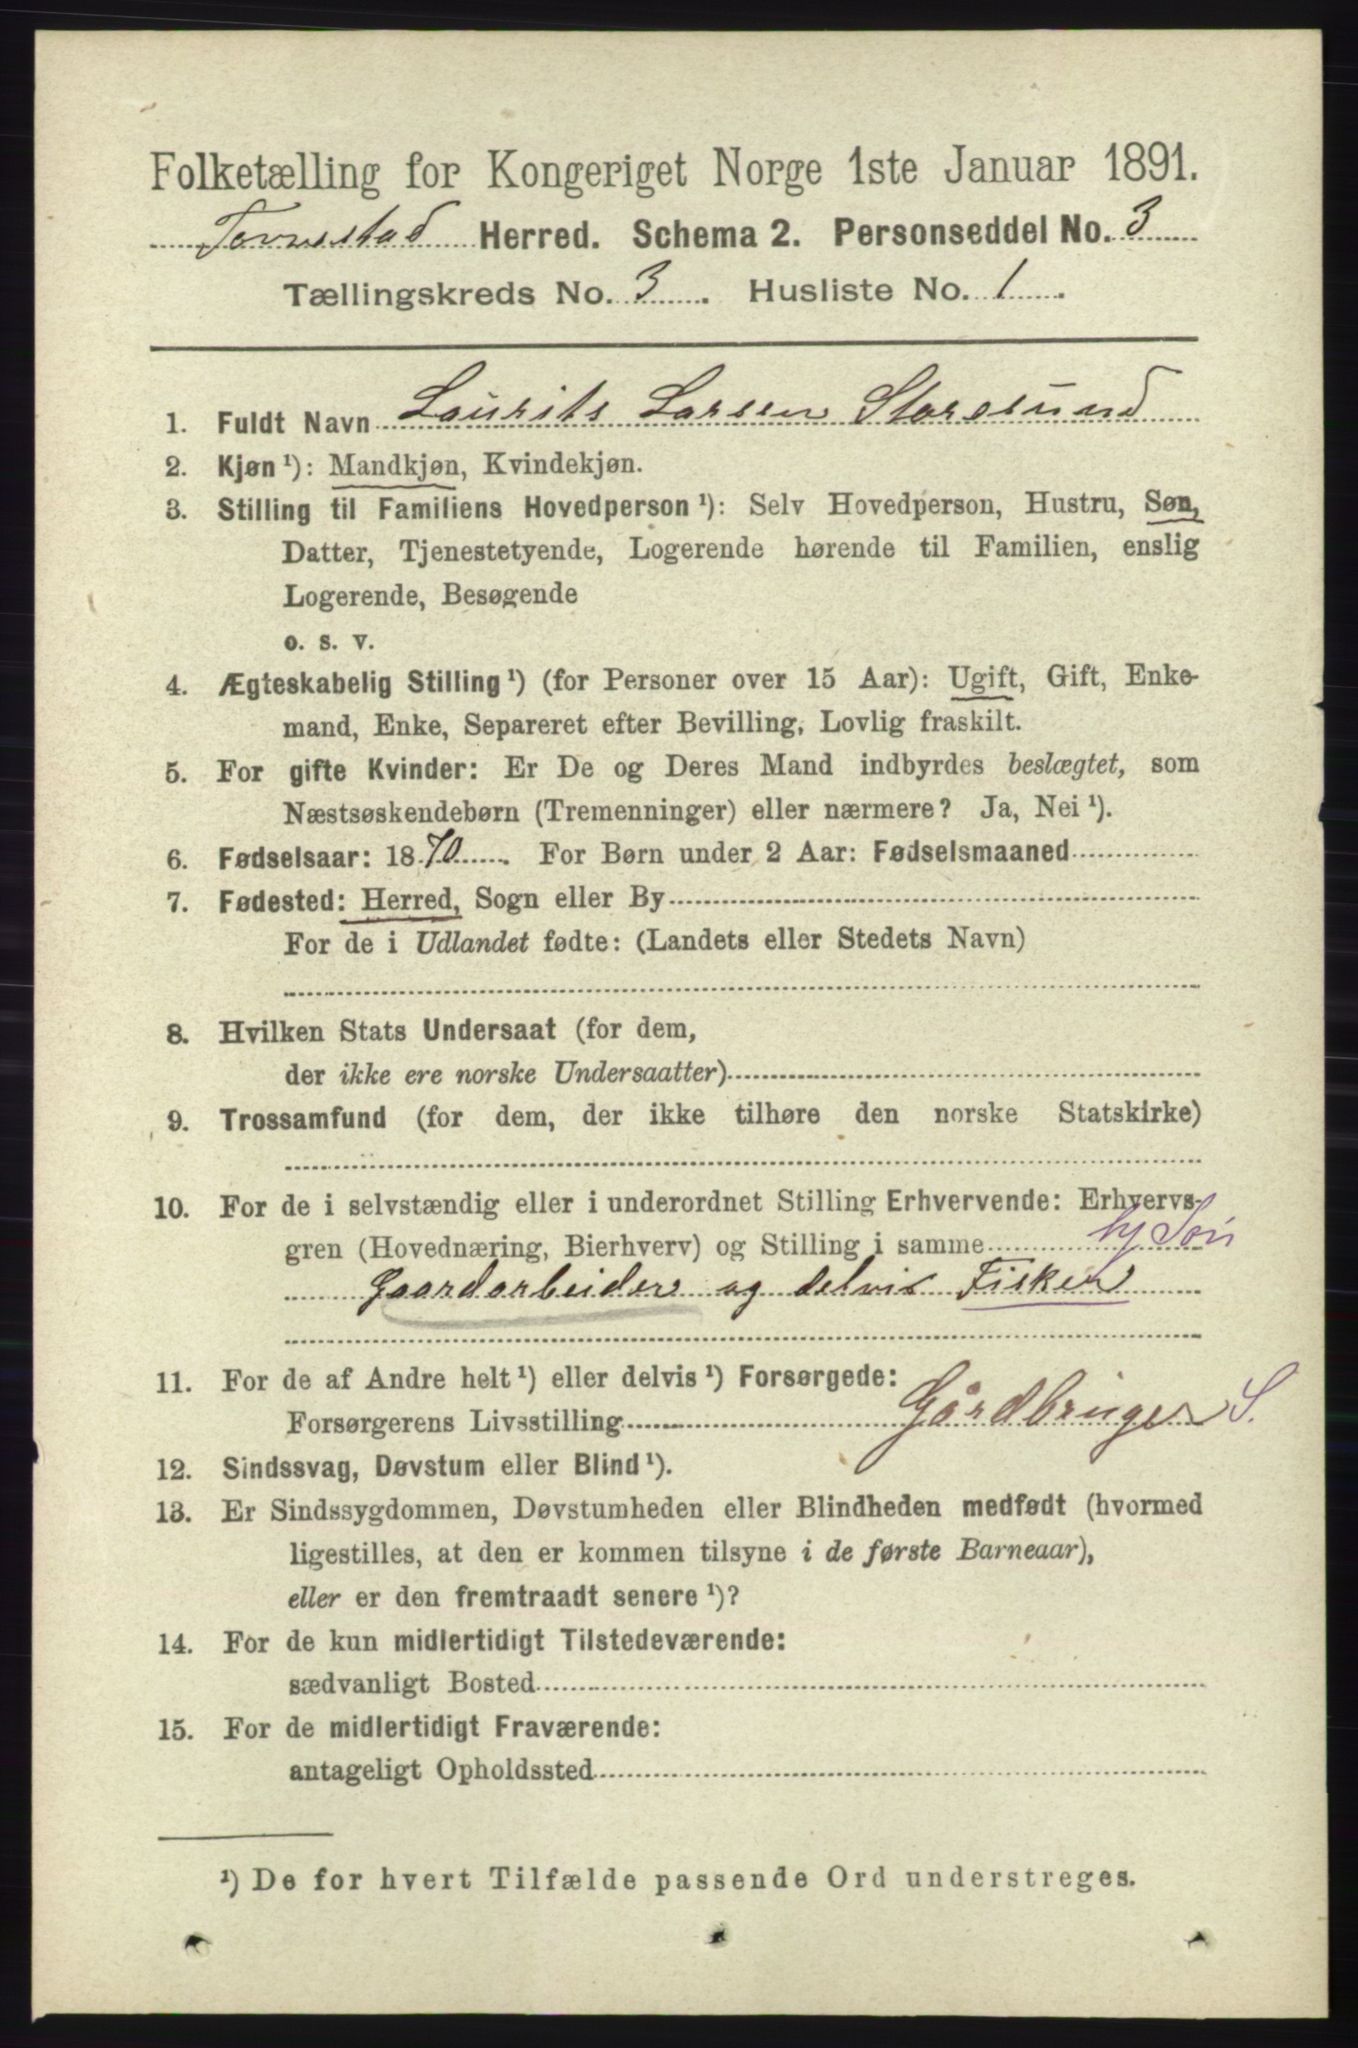 Folketælling for Kongeriget Norge 1ste Januar 1891.
Torvestad Herred. Schema 2. Personseddel No. 3
Tællingskreds No. 3. Husliste No. 1.
1. Fuldt Navn Laurits Larsen Storesund
2. Kjøn ¹): Mandkjøn, Kvindekjøn.
3. Stilling til Familiens Hovedperson ¹): Selv Hovedperson, Hustru, Søn,
Datter, Tjenestetyende, Logerende hørende til Familien, enslig
Logerende, Besøgende
o. s. v.
4. Ægteskabelig Stilling ¹) (for Personer over 15 Aar): Ugift, Gift, Enke-
mand, Enke, Separeret efter Bevilling, Lovlig fraskilt.
5. For gifte Kvinder: Er De og Deres Mand indbyrdes beslægtet, som
Næstsøskendebørn (Tremenninger) eller nærmere? Ja, Nei ¹).
6. Fødselsaar: 1870. For Børn under 2 Aar: Fødselsmaaned
7. Fødested: Herred, Sogn eller By
For de i Udlandet fødte: (Landets eller Stedets Navn)
8. Hvilken Stats Undersaat (for dem,
der ikke ere norske Undersaatter)
9. Trossamfund (for dem, der ikke tilhøre den norske Statskirke)
10. For de i selvstændig eller i underordnet Stilling Erhvervende: Erhvervs-
gren (Hovednæring, Bierhverv) og Stilling i samme hj Søn
Gaardarbeider og delvis Fisker
11. For de af Andre helt ¹) eller delvis ¹) Forsørgede:
Forsørgerens Livsstilling Gårdbruger S.
12. Sindssvag, Døvstum eller Blind ¹).
13. Er Sindssygdommen, Døvstumheden eller Blindheden medfødt (hvormed
ligestilles, at den er kommen tilsyne i de første Barneaar),
eller er den fremtraadt senere ¹)?
14. For de kun midlertidigt Tilstedeværende:
sædvanligt Bosted
15. For de midlertidigt Fraværende:
antageligt Opholdssted
¹) De for hvert Tilfælde passende Ord understreges.